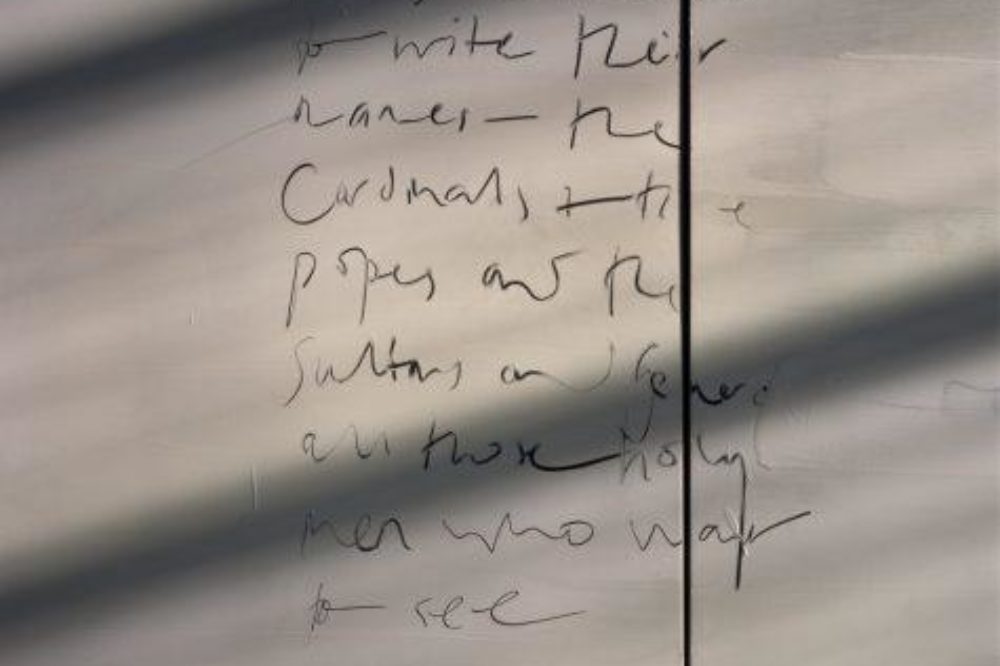 to write their
names – the
Cardinals + the
popes and the
Sultans and
all those holy
men who want
to see